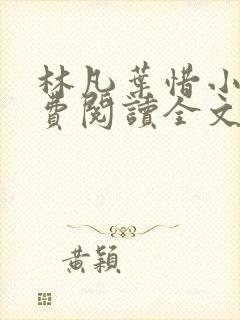 林凡葉惜小
費閱讀全文
黃穎